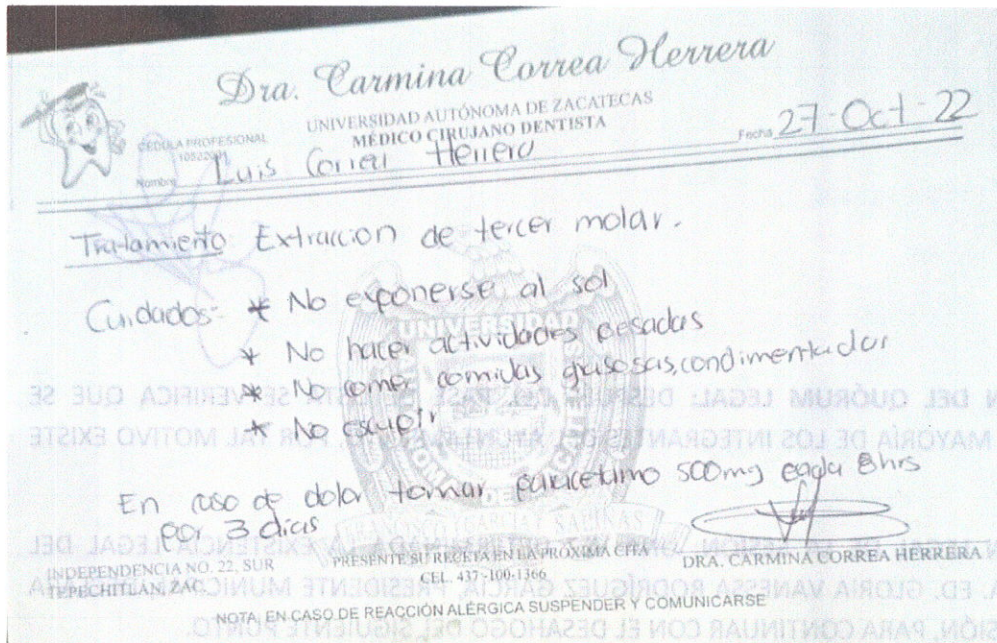 Dra. Carmina Correa Herrera
UNIVERSIDAD AUTÓNOMA DE ZACATECAS
MÉDICO CIRUJANO DENTISTA
CEDULA PROFESIONAL
Fecha 27-Oct-22
Nombre Luis Correa Herrera
Tratamiento Extraccion de tercer molar.
Cuidados: * No exponerse al sol
* No hacer actividades pesadas
* No comer comidas grasosas, condimentadas
* No escupir
En caso de dolor tomar paracetamo 500mg cada 8hrs
por 3 dias
INDEPENDENCIA NO. 22, SUR
TEPECHITLAN, ZAC.
PRESENTE SU RECETA EN LA PRÓXIMA CITA
CEL. 437-100-1366
DRA. CARMINA CORREA HERRERA
NOTA: EN CASO DE REACCIÓN ALÉRGICA SUSPENDER Y COMUNICARSE